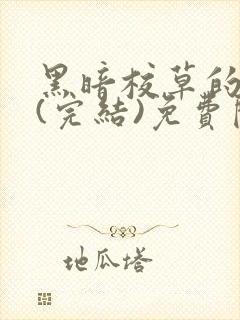 黑暗校草的
(完結)免費
地瓜塔